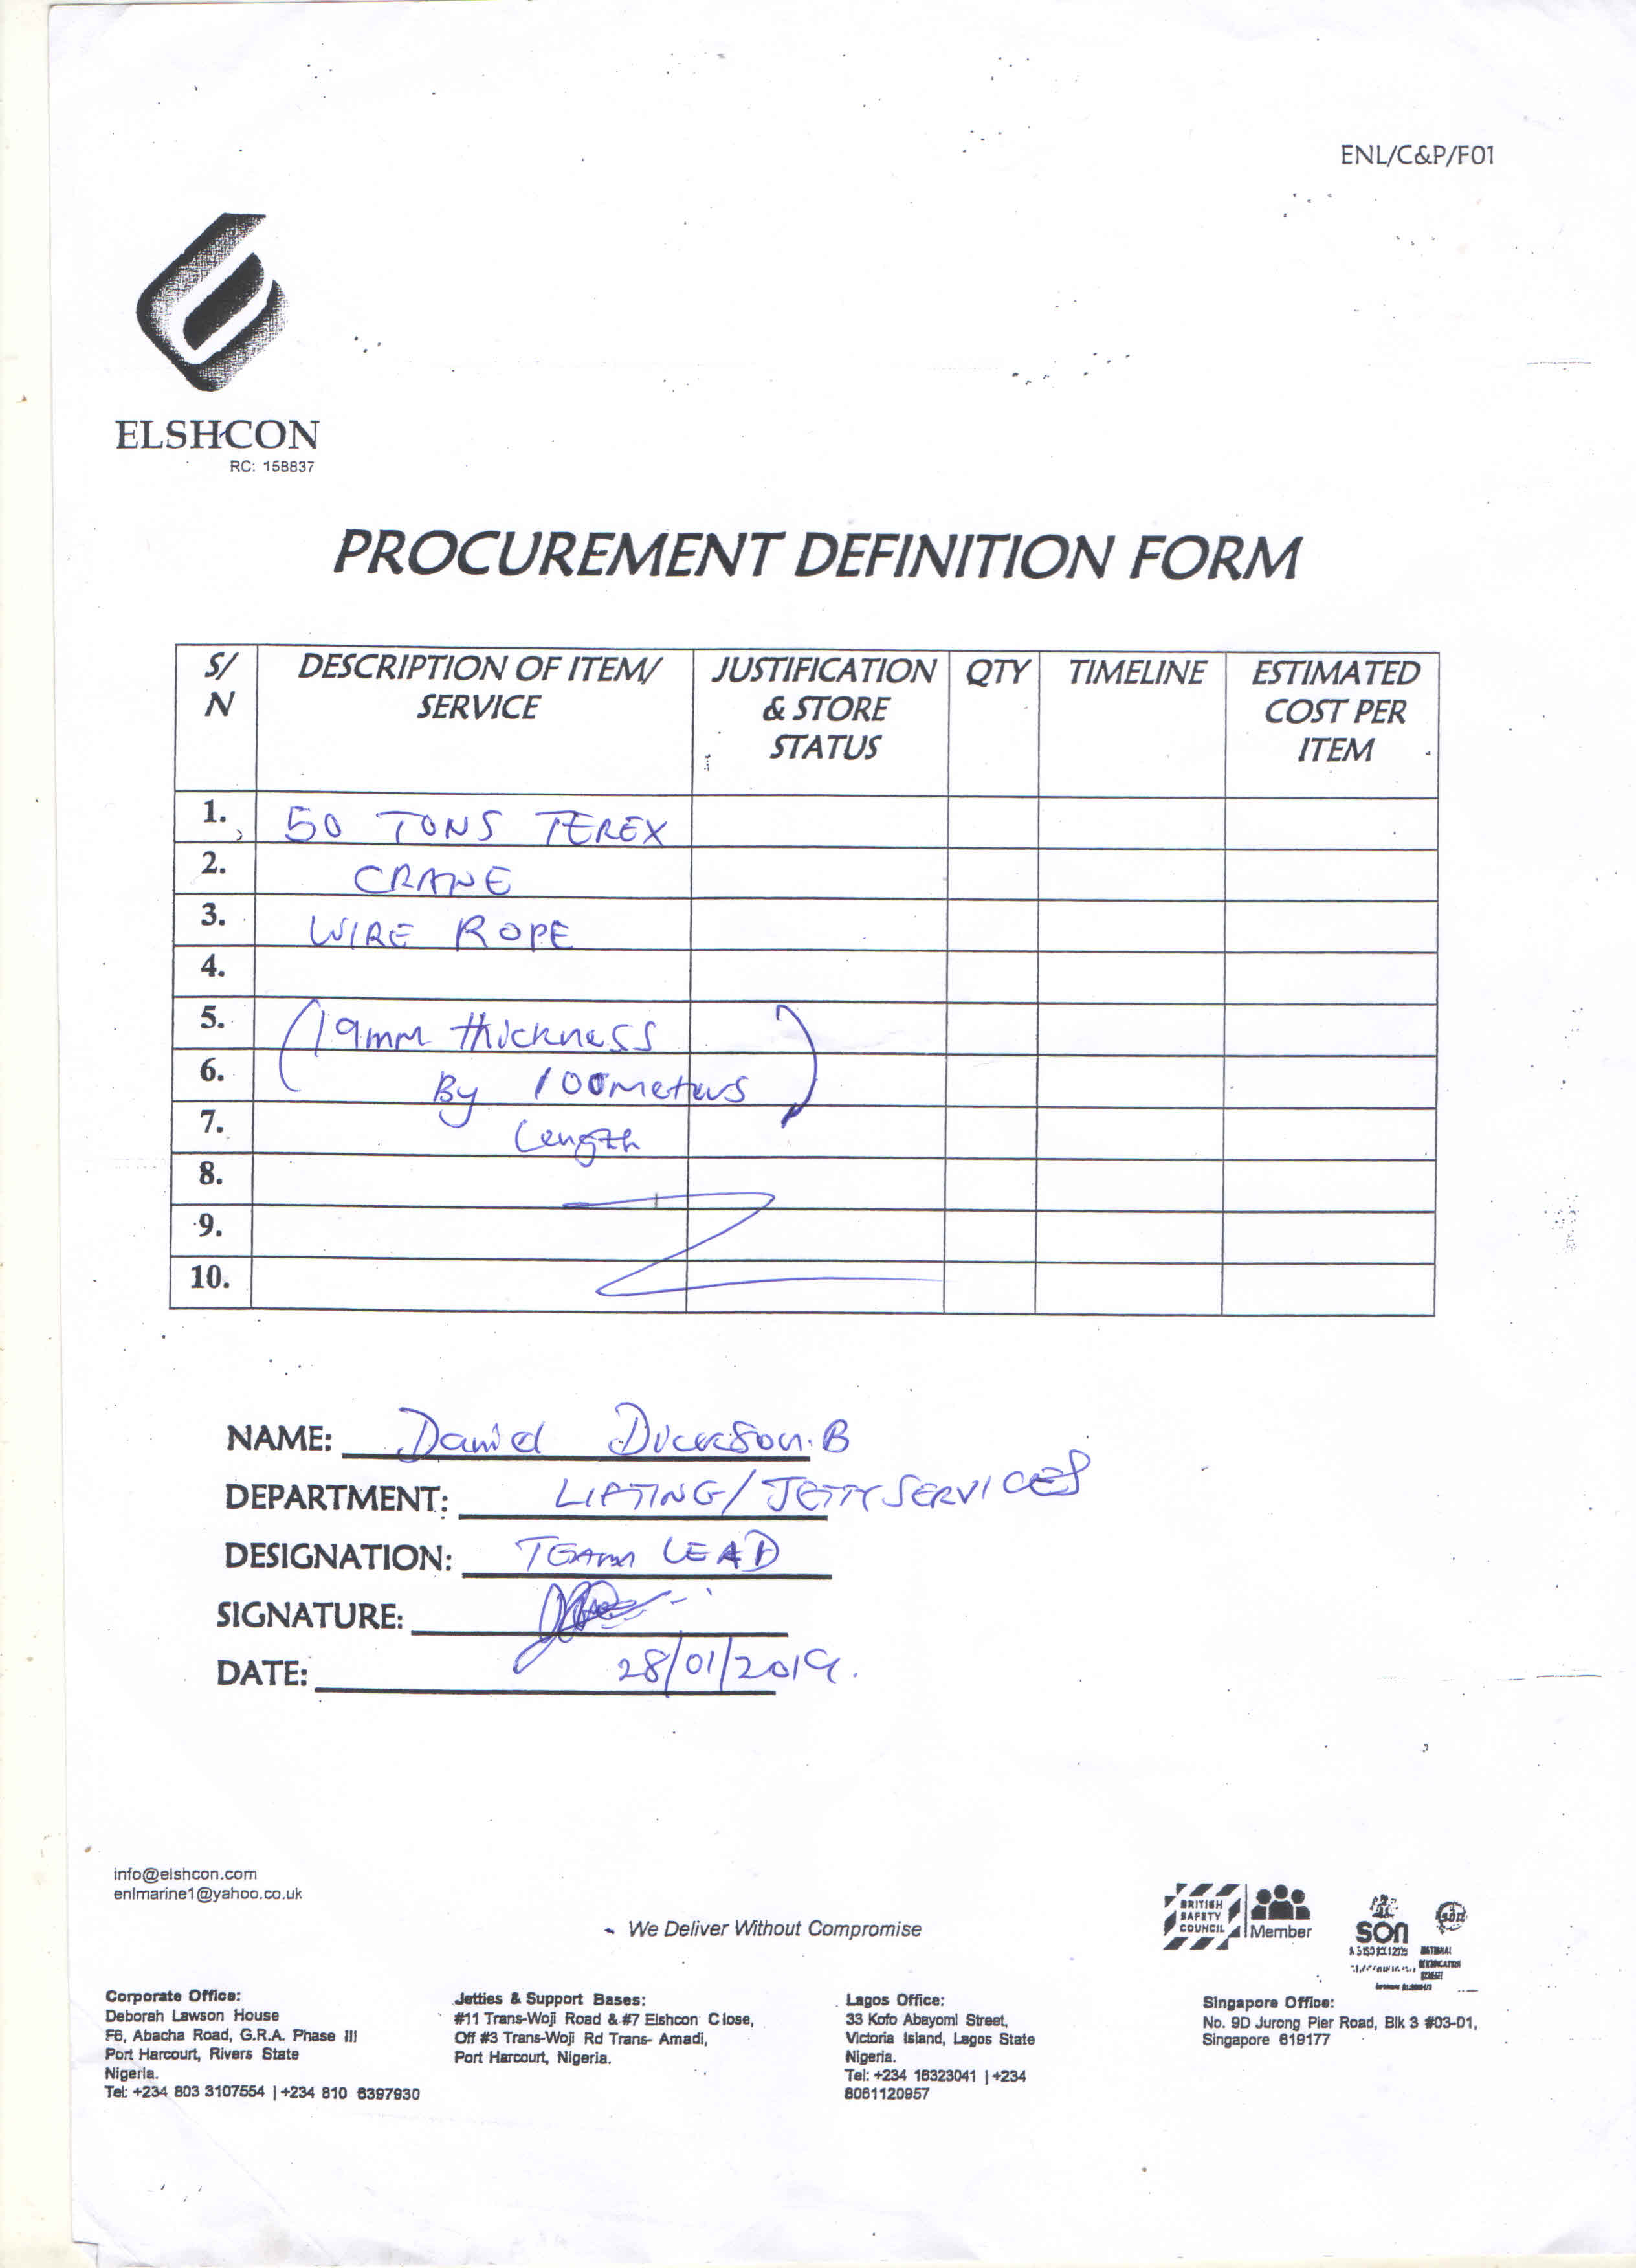 ENL/C&P/F01
ELSHCON
RC: 158837
PROCUREMENT DEFINITION FORM
S/N DESCRIPTION OF ITEM/ SERVICE JUSTIFICATION & STORE STATUS QTY TIMELINE ESTIMATED COST PER ITEM
1. 50 TONS TEREX
2. CRANE
3. WIRE ROPE
4.
5. (19mm thickness
6. By 100meters)
7. Length
8.
9.
10.
NAME: Daniel Dickson.B
DEPARTMENT: LIFTING/JETTY SERVICES
DESIGNATION: TEAM LEAD
SIGNATURE:
DATE: 28/01/2019.
info@elshcon.com
enlmarine1@yahoo.co.uk
We Deliver Without Compromise
BRITISH SAFETY COUNCIL Member
SON
Corporate Office:
Deborah Lawson House
F6, Abacha Road, G.R.A. Phase III
Port Harcourt, Rivers State
Nigeria.
Tel: +234 803 3107554 | +234 810 6397930
Jetties & Support Bases:
#11 Trans-Woji Road & #7 Elshcon Close,
Off #3 Trans-Woji Rd Trans- Amadi,
Port Harcourt, Nigeria.
Lagos Office:
33 Kofo Abayomi Street,
Victoria Island, Lagos State
Nigeria.
Tel: +234 16323041 | +234
8061120957
Singapore Office:
No. 9D Jurong Pier Road, Blk 3 #03-01,
Singapore 619177